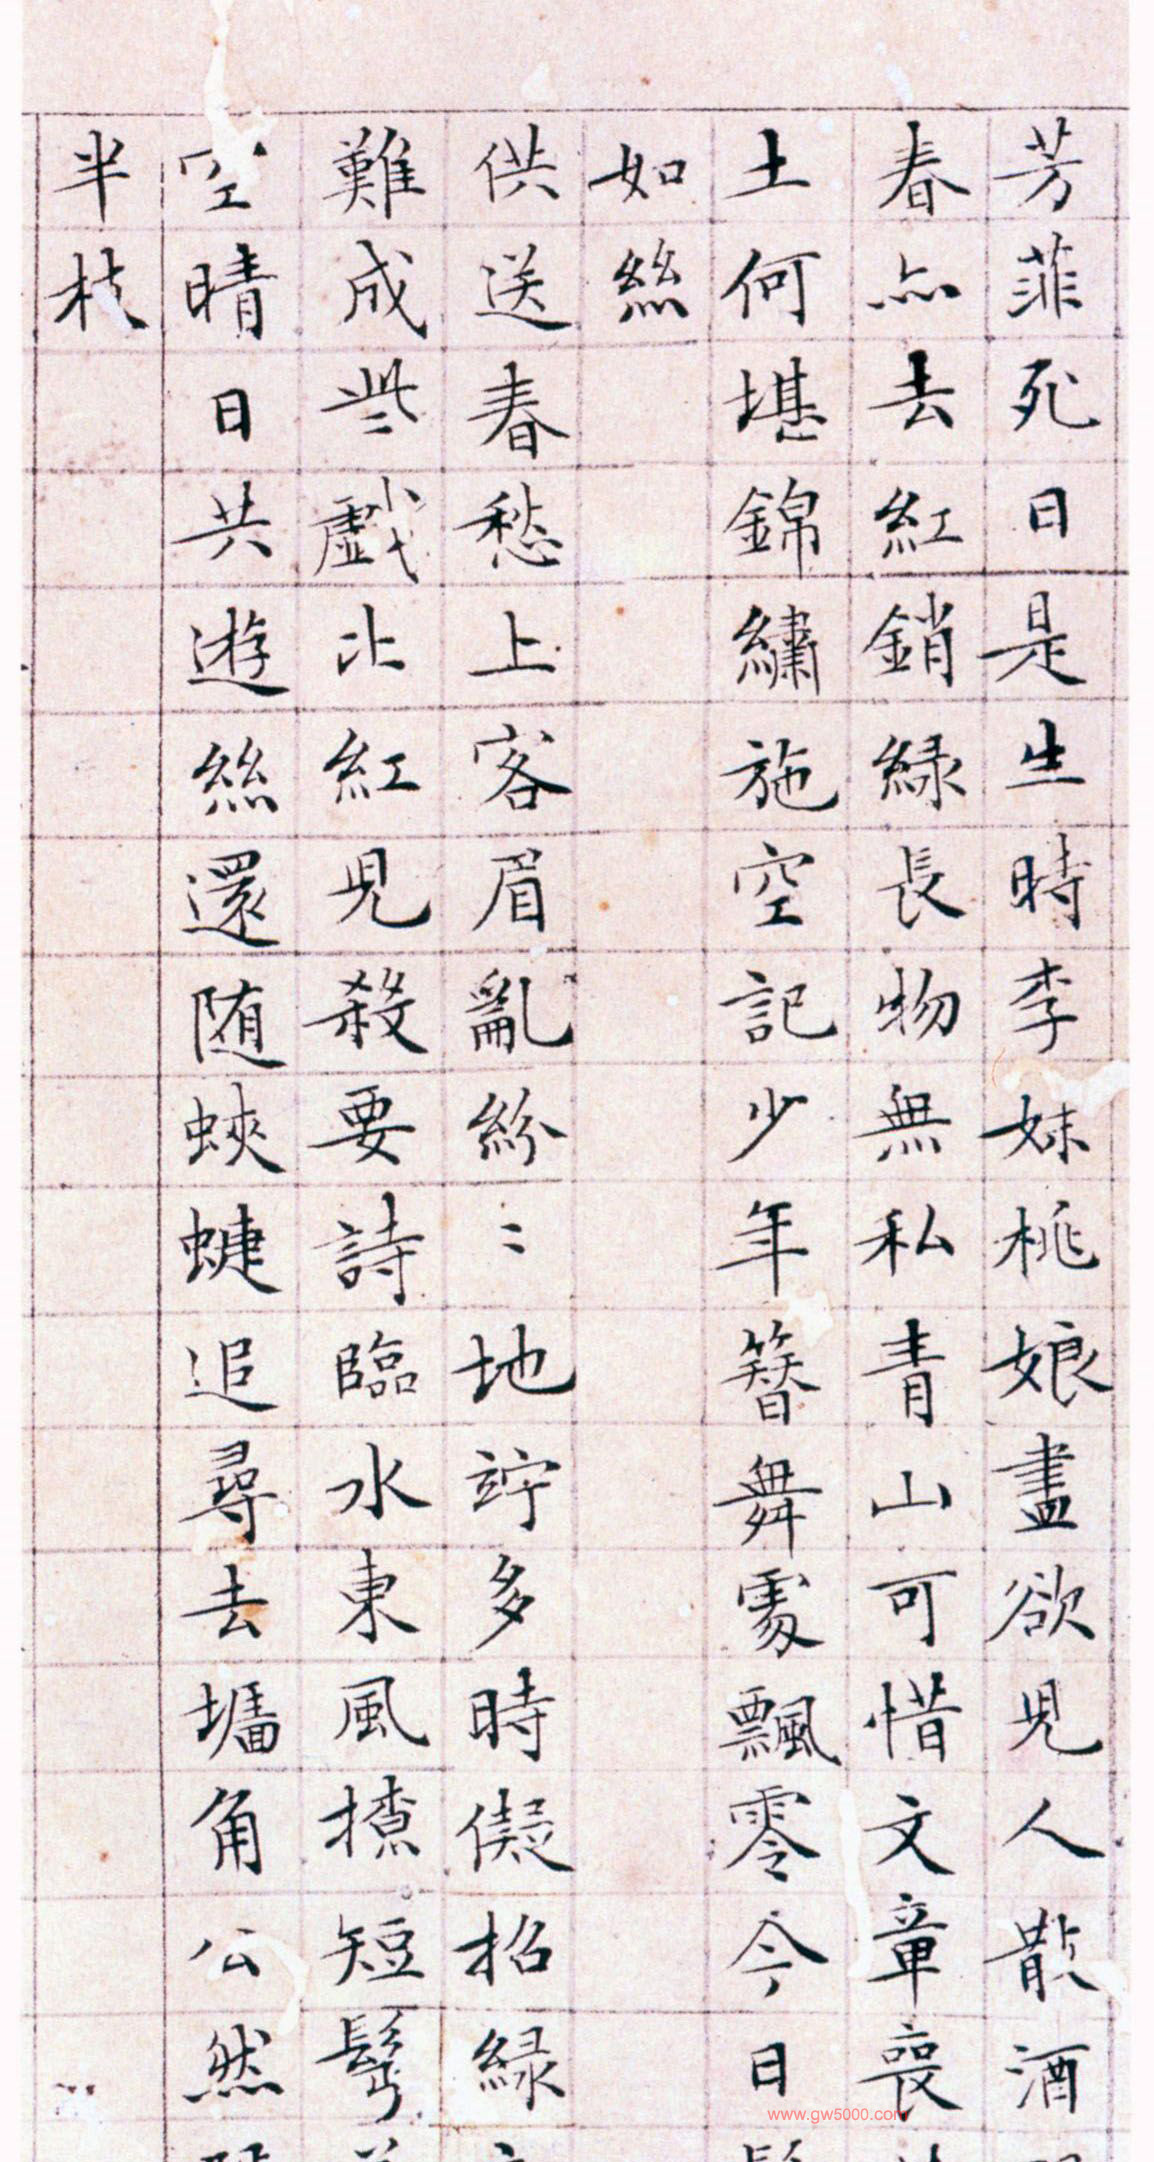 芳菲死日是生時李妹桃娘盡欲児人散酒
春亦去紅銷緑長物無私青山可惜文章喪
土何堪錦繡施空記少年簪舞處飄零今日
如絲
供送春愁上客眉亂紛〻地竚多時儗招緑
難成些戲比紅児殺要詩臨水東風撩短鬢
空晴日共遊絲還随蛺蜨追尋去墻角公然
半枝
www.gw5000.com